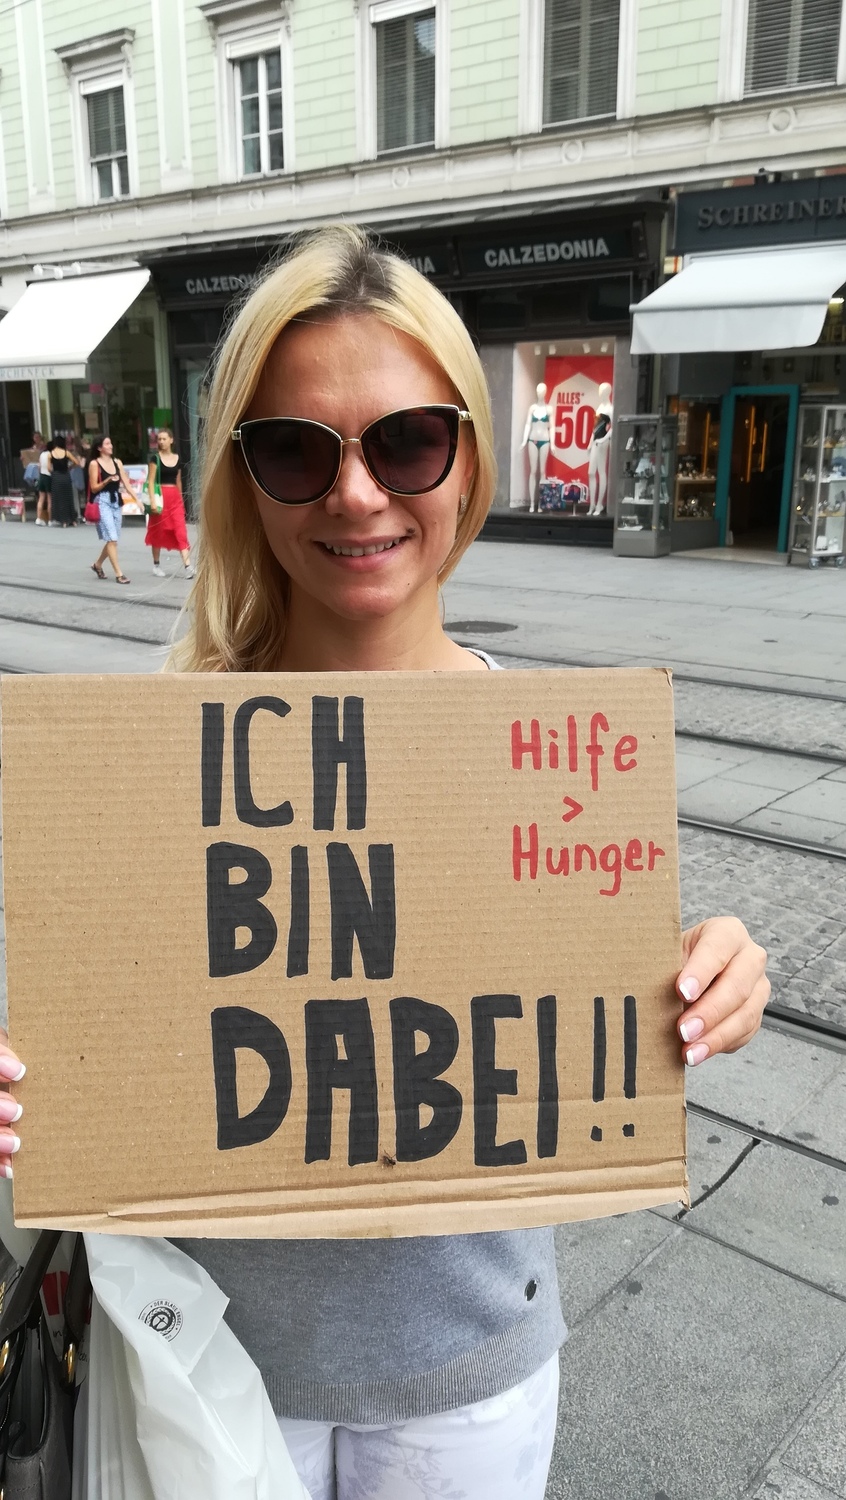 SCHREINER
CALZEDONIA
CALZEDONIA
ALLES*
50
ICH
BIN
DABEI!!
Hilfe
>
Hunger
DER BLAUE ENGEL